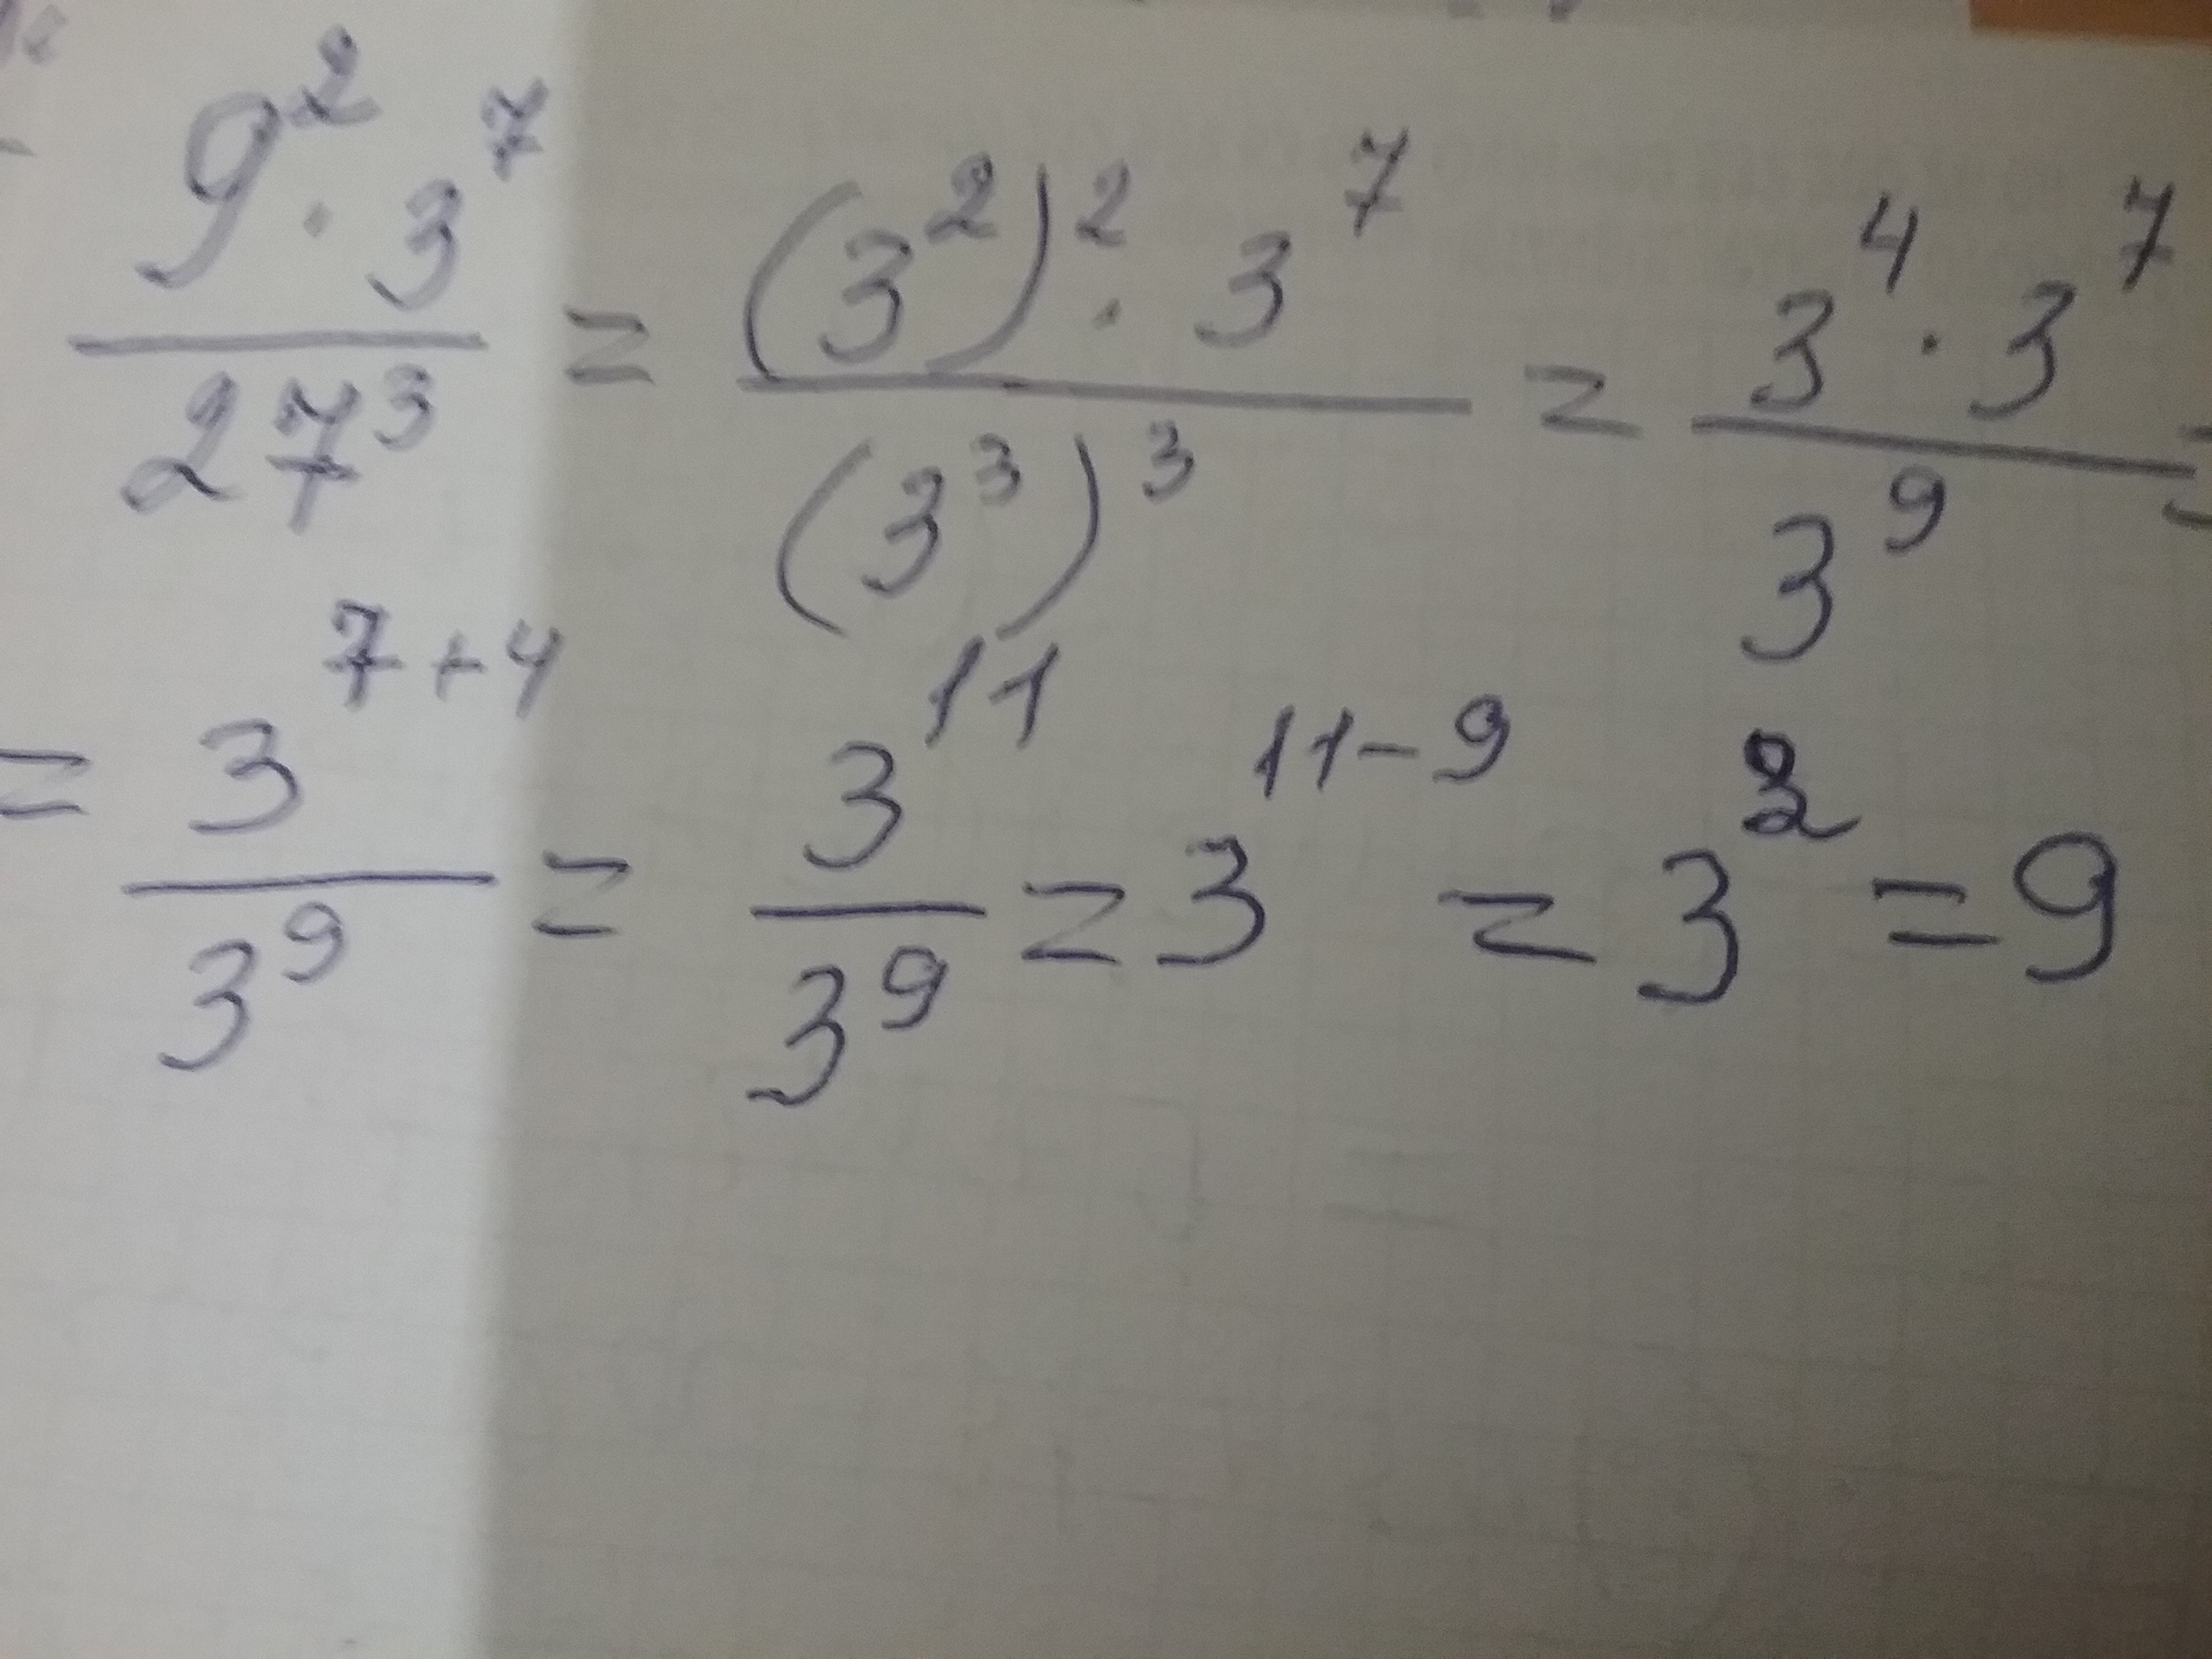 9² · 3⁷ / 27³ = (3²)² · 3⁷ / (3³)³ = 3⁴ · 3⁷ / 3⁹ =
= 3⁷⁺⁴ / 3⁹ = 3¹¹ / 3⁹ = 3¹¹⁻⁹ = 3² = 9